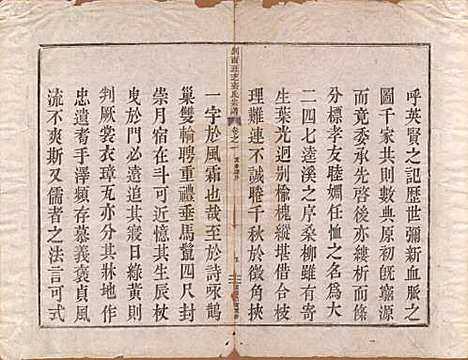 呼英賢之記歷世彌新血脈之
圖千家共則數典原初旣竅源
而竟委承先啓後亦縷析而條
分標孝友睦婣任恤之名爲大
二四七逵溪之序桑柳雖有寄
生葉光迥别楡槐縱堪借合枝
理難連不誠睠千秋於徵角挾
一字於風霜也哉至於詩咏鵲
巢雙輪聘重禮垂馬鬣四尺封
崇月宿在斗可近憶其生辰杖
曳於門必遠追其寢日綠黃則
判厥裳衣璋瓦亦分其牀地作
忠遺耉手澤頻存慕義褒貞風
流不爽斯又儒者之法言可式